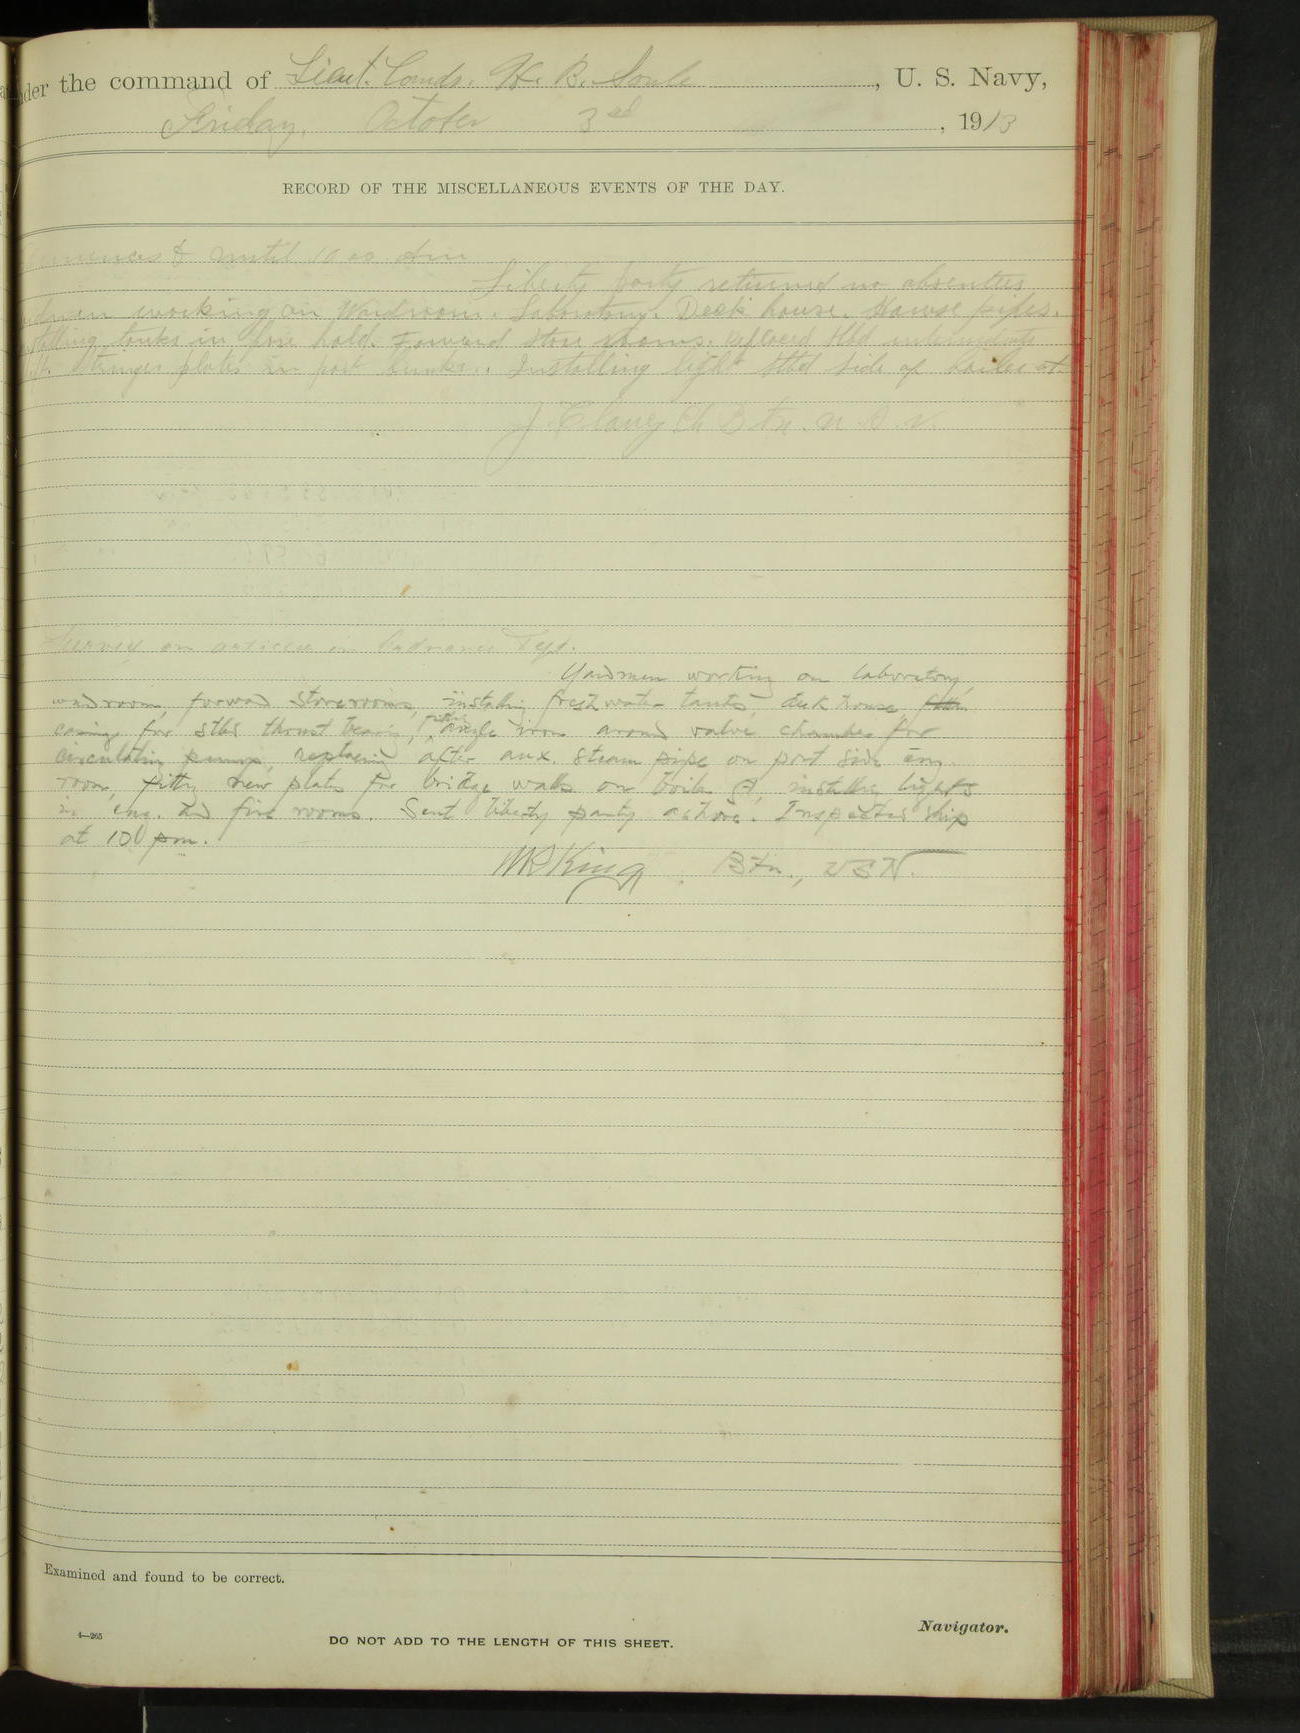 nder the command of Lieut. Comdr. H. B. Soule, U. S. Navy,
Friday, October 3rd, 1913
RECORD OF THE MISCELLANEOUS EVENTS OF THE DAY.
until 10 00
Liberty party returned no absentees
working on Wardroom. Laboratory. Deck house. Hawse pipes.
tanks in fore hold. Forward Store rooms. Stbd
Stringer plates in port bunker. Installing light Stbd side of boiler
J Clancy Ch Btn. U. S. N.
Survey on articles in Ordnance Dept.
Yardmen working on laboratory,
wardroom, forward storerooms, installing fresh water tanks, deck house,
casing for stbd thrust bearing, fitting angle iron around valve chamber for
circulating pump, replacing after aux. steam pipe on port side eng.
room, fitting new plates for bridge walls on boiler A, installing lights
in eng. and fire rooms. Sent liberty party ashore. Inspected ship
at 100 pm.
King, Btn., USN.
Examined and found to be correct.
Navigator.
4—265
DO NOT ADD TO THE LENGTH OF THIS SHEET.